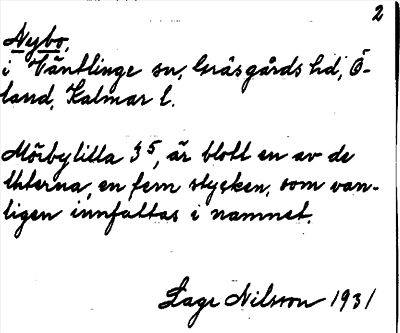 2
Nybo,
i Väntlinge sn, Gräsgårds hd, Ö-
land, Kalmar l.
Mörbylilla 3⁵, är blott en av de
Utterna, en fem stycken, som van-
ligen innfattas i namnet.
Lage Nilsson 1931